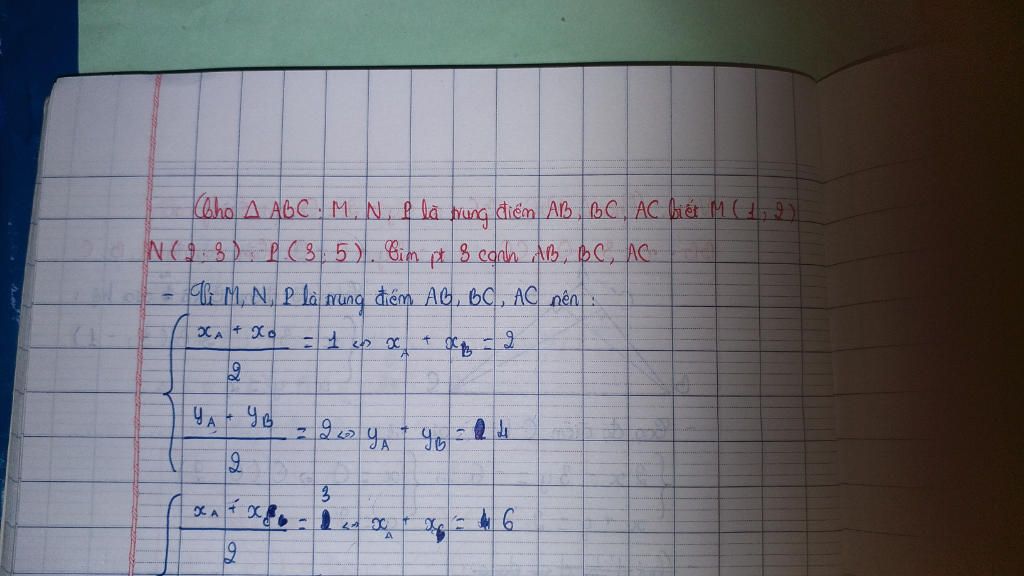 Cho Δ ABC. M, N, P là trung điểm AB, BC, AC biết M(1; 2)
N(2; 3); P(3; 5). Tìm pt 3 cạnh AB, BC, AC
- Vì M, N, P là trung điểm AB, BC, AC nên:
(x_A + x_B)/2 = 1 ⇔ x_A + x_B = 2
(y_A + y_B)/2 = 2 ⇔ y_A + y_B = 4
(x_A + x_C)/2 = 3 ⇔ x_A + x_C = 6